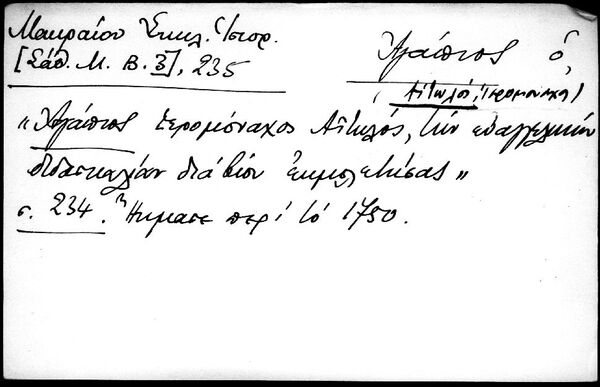 Μακραίου Ἐκκλ. Ἱστορ.
[Σάθ. Μ. Β. 3], 235
Ἀγάπιος ὁ,
(Αἰτωλός, ἱερομόναχος)
"Ἀγάπιος ἱερομόναχος Αἰτωλός, τὴν εὐαγγελικὴν
διδασκαλίαν διὰ βίου ἐκμελετήσας"
σ. 234. Ἤκμασε περὶ τὸ 1750.